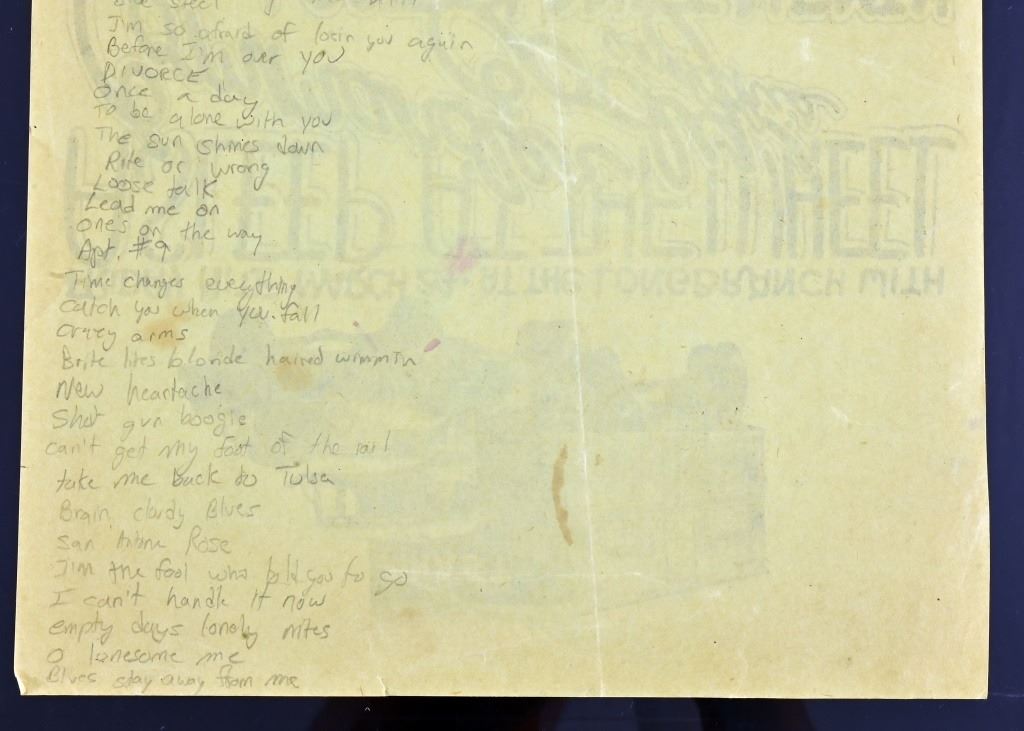 I'm so afraid of losin you again
Before I'm over you
DIVORCE
Once a day
To be alone with you
The sun shines down
Rite or wrong
Loose talk
Lead me on
ones on the way
Apt. #9
Time changes everything
Catch you when you fall
Crazy arms
Brite lites blonde haired wimmin
New heartache
Shot gun boogie
can't get my foot of the rail
take me back to Tulsa
Brain cloudy Blues
San Antone Rose
I'm the fool who told you to go
I can't handle it now
empty days lonely nites
O lonesome me
Blues stay away from me
MARCH 24 AT THE LONGBRANCH WITH